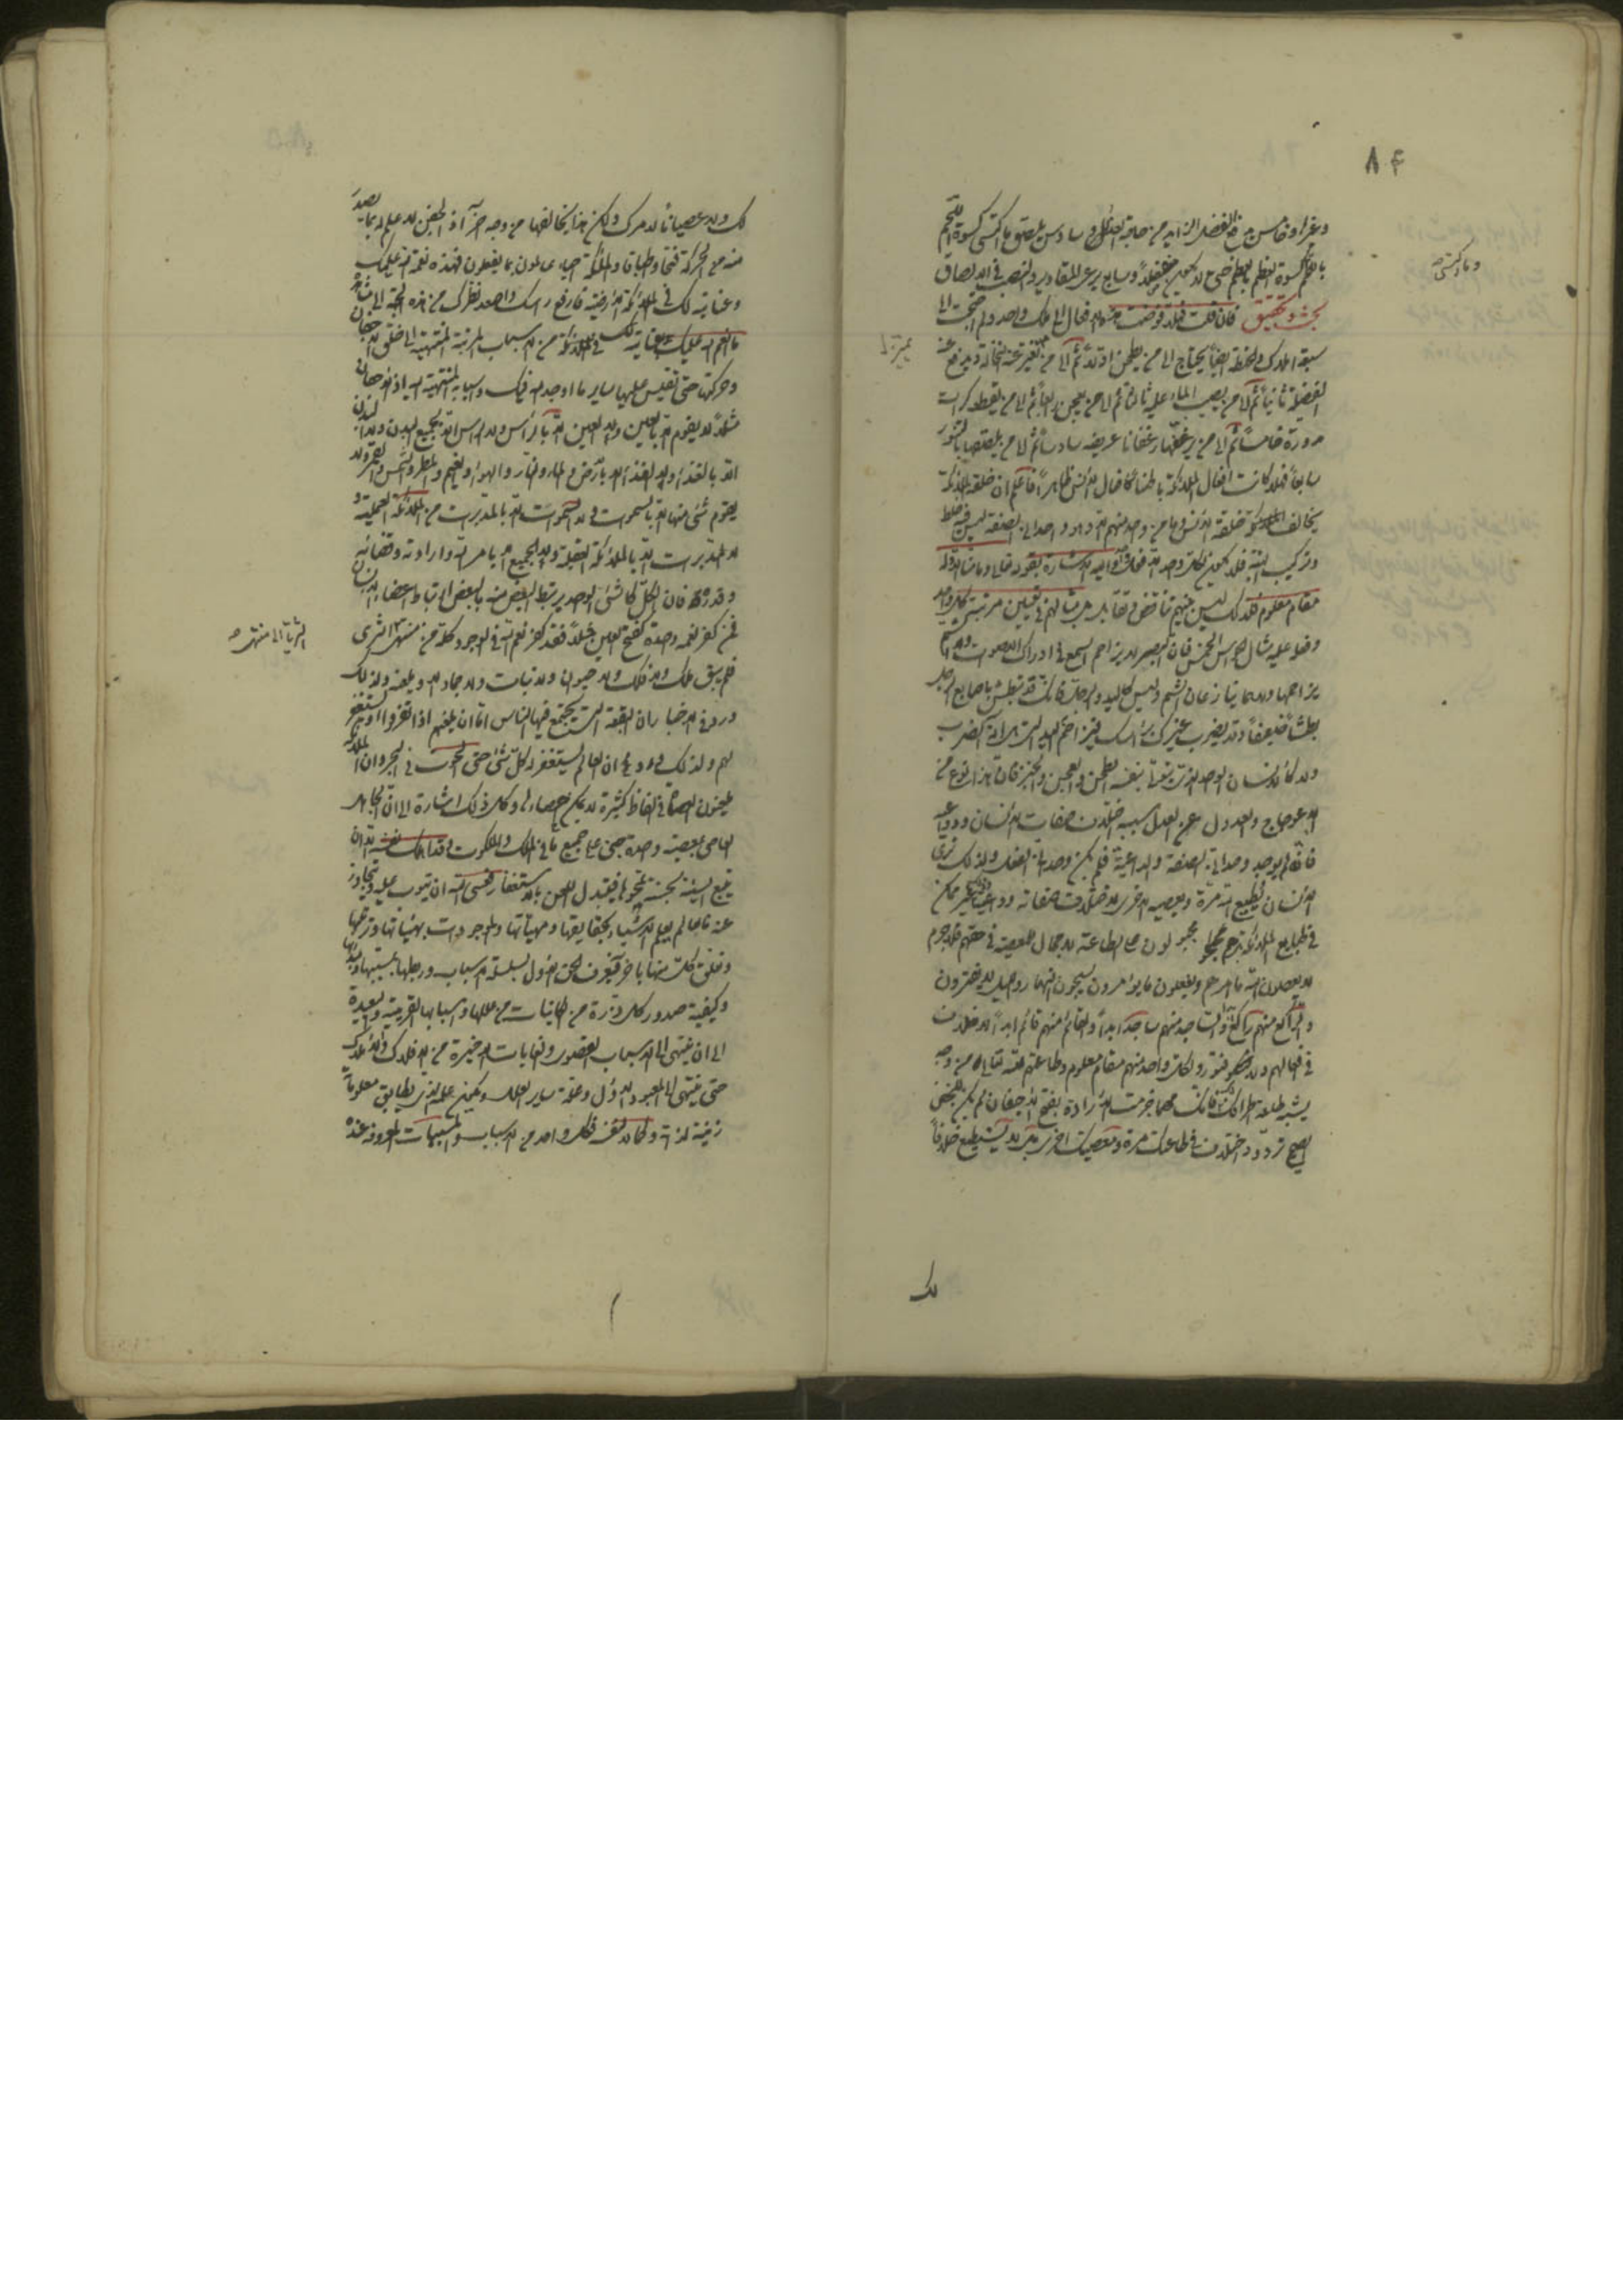 ٨٤
وغيره وخامس يدفع الفضل الزايد من حاجة الغذاء وسادس يلصق ما اكتسى كسوة اللحم
باللحم وكسوة العظم بالعظم حتى لا يكون منفصلا وسابع يرعى المقادير والنسب في الالصاق
بحث وتحقيق فان قلت فهلا فوضت هذه الافعال الى ملك واحد ولم احتجت الى
سبعة املاك والحنطة ايضا يحتاج الى من يطحن اولا ثم الى من يميز عنه النخالة ويدفع عنه
الفضلة ثانيا ثم الى من يصب الماء عليه ثالثا ثم الى من يعجن رابعا ثم الى من يقطعه كرات
مدورة خامسا ثم الى من يرغفها رغفانا عريضة سادسا ثم الى من يلصقها بالتنور
سابعا فهلا كانت افعال الملائكة باطنا كافعال الانس ظاهرا فاعلم ان خلقة الملائكة
يخالف خلقة الانس وما من واحد منهم الا وهو وحداني الصفة ليس فيه خلط
وتركيب البتة فلا يكون لكل واحد الا فعل واحد واليه الاشارة بقوله تعالى وما منا الا وله
مقام معلوم فلذلك ليس بينهم تنافس وتقابل بل مثالهم في تعيين مرتبة كل واحد
وفعله عليه مثال الحواس الخمس فان البصر لا يزاحم السمع في ادراك الاصوات ولا الشم
يزاحمها ولا هما ينازعان الشم وليس كاليد والرجل فانك قد تبطش باصابع الرجل
بطشا ضعيفا وقد يضرب غيرك براسك فتزاحم اليد التي هي الة الضرب
ولا كالانسان الواحد الذي يتولى بنفسه الطحن والعجن والخبز فان هذا نوع من
الاعوجاج والعدول عن العدل سببه اختلاف صفات الانسان ودواعيه
فانه لم يوجد وحداني الصفة والداعية فلم يكن وحداني الفعل ولذلك نرى
الانسان يطيع الله مرة ويعصيه اخرى لاختلاف صفاته ودواعيه وذلك غير ممكن
في طبايع الملائكة بل هم مجبولون على الطاعة لا مجال للمعصية في حقهم فلا جرم
لا يعصون الله ما امرهم ويفعلون ما يؤمرون يسبحون النهار والليل لا يفترون
والراكع منهم راكع والساجد منهم ساجد ابدا والقائم منهم قائم ابدا لا اختلاف
في افعالهم ولا فتور ولكل واحد منهم مقام معلوم وطاعتهم لله تعالى من وجه
يشبه طاعة اطرافك لك فانك مهما جزمت الارادة بفتح الاجفان لم يكن للجفن
الصحيح تردد واختلاف في طاعتك مرة ومعصيتك اخرى بل لا يستطيع خلافا
لك
وما اكتسى
لك ولا عصيانا لامرك ولكن هذا يخالفها من وجه اخر اذ الجفن لا علم له بما يصدر
منه من الحركة فتحا واطباقا والملائكة احياء عالمون بما يفعلون فهذه نعمة الله عليك
وعنايته لك في الملائكة الارضية فارفع راسك واصعد نظرك من هذه الجهة الى مشاهدة
ما انعم الله عليك وعنايته لك في الملائكة من الاسباب المرتبة المنتهية الى خلق الاجفان
وحركتها حتى تقيس عليها ساير ما اوجد الله فيك واسبابه المنتهية اليه اذ الاجفان
مثلا لا يقوم الا بالعين ولا العين الا بالراس ولا الراس الا بجميع البدن ولا البدن
الا بالغذاء ولا الغذاء الا بالارض والماء والنار والهواء والغيم والمطر والشمس والقمر ولا
يقوم شئ منها الا بالسموات ولا السموات الا بالمدبرات من الملائكة العملية و
لا المدبرات الا بالملائكة العقلية ولا الجميع الا بامر الله وارادته وقضائه
وقدره فان الكل كالشئ الواحد يرتبط البعض منه بالبعض ارتباط اعضاء البدن
فمن كفر نعمة واحدة كفتح العين مثلا فقد كفر نعم الله في الوجود كله من منتهى الثرى
فلم يبق ملك ولا فلك ولا حيوان ولا نبات ولا جماد الا ويلعنه ولذلك
ورد في الاخبار ان البقعة التي يجتمع فيها الناس اما ان يلعنهم اذا تفرقوا او يستغفر
لهم ولذلك ورد ان العالم يستغفر له كل شئ حتى الحوت في البحر وان الملائكة
يلعنون العصاة في الفاظ كثيرة لا يمكن احصاءها وكل ذلك اشارة الى ان
العاصي بمعصية واحدة جنى على جميع ما في الملك والملكوت وقد اهلك نفسه الا ان
يتبع السيئة بحسنة تمحوها فيتبدل اللعن بالاستغفار فعسى الله ان يتوب عليه ويتجاوز
عنه فالعالم يعلم الاشياء بحقايقها ومهياتها والموجودات بهيئاتها وترتيبها
وتعلق كل منها باخر فيعرف الحق الاول بسلسلة الاسباب وربطها بمسبباتها
وكيفية صدور كل ذرة من الكاينات من عللها واسبابها القريبة والبعيدة
الى ان ينتهي الى الاسباب القصوى والغايات الاخيرة من الافلاك والاملاك
حتى ينتهي الى المعبود الاول وعلة ساير العلل ويكون علمه الذي يطابق معلوما
زينة لذاته وكمالا لنفسه فكل واحد من الاسباب والمسببات المعروفة عنده
الثريا الى منتهى